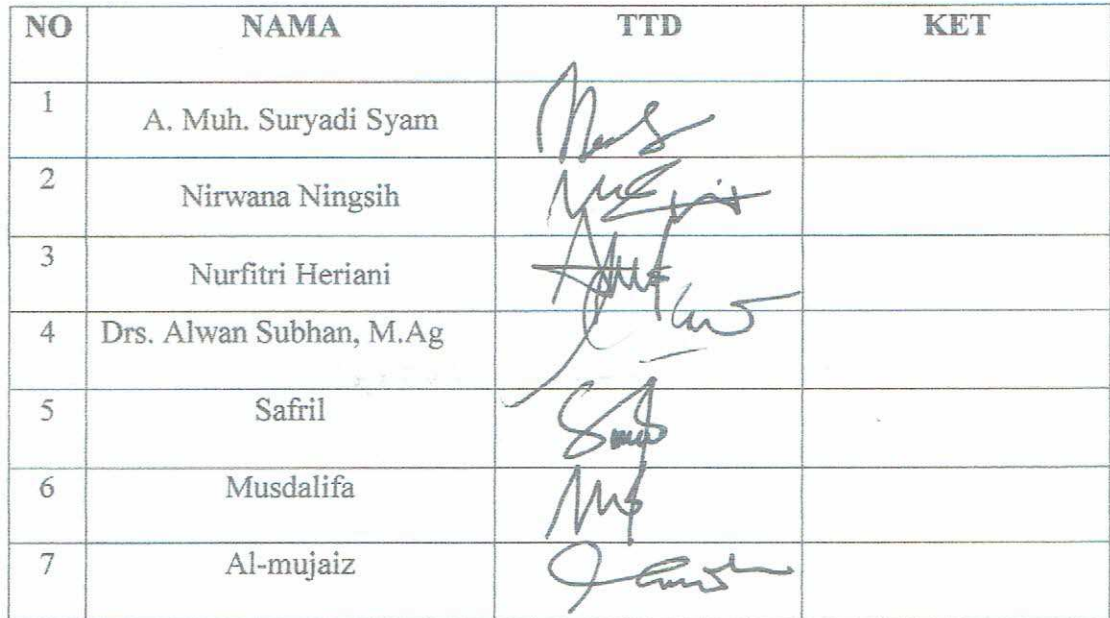 NO NAMA TTD KET
1 A. Muh. Suryadi Syam
2 Nirwana Ningsih
3 Nurfitri Heriani
4 Drs. Alwan Subhan, M.Ag
5 Safril
6 Musdalifa
7 Al-mujaiz